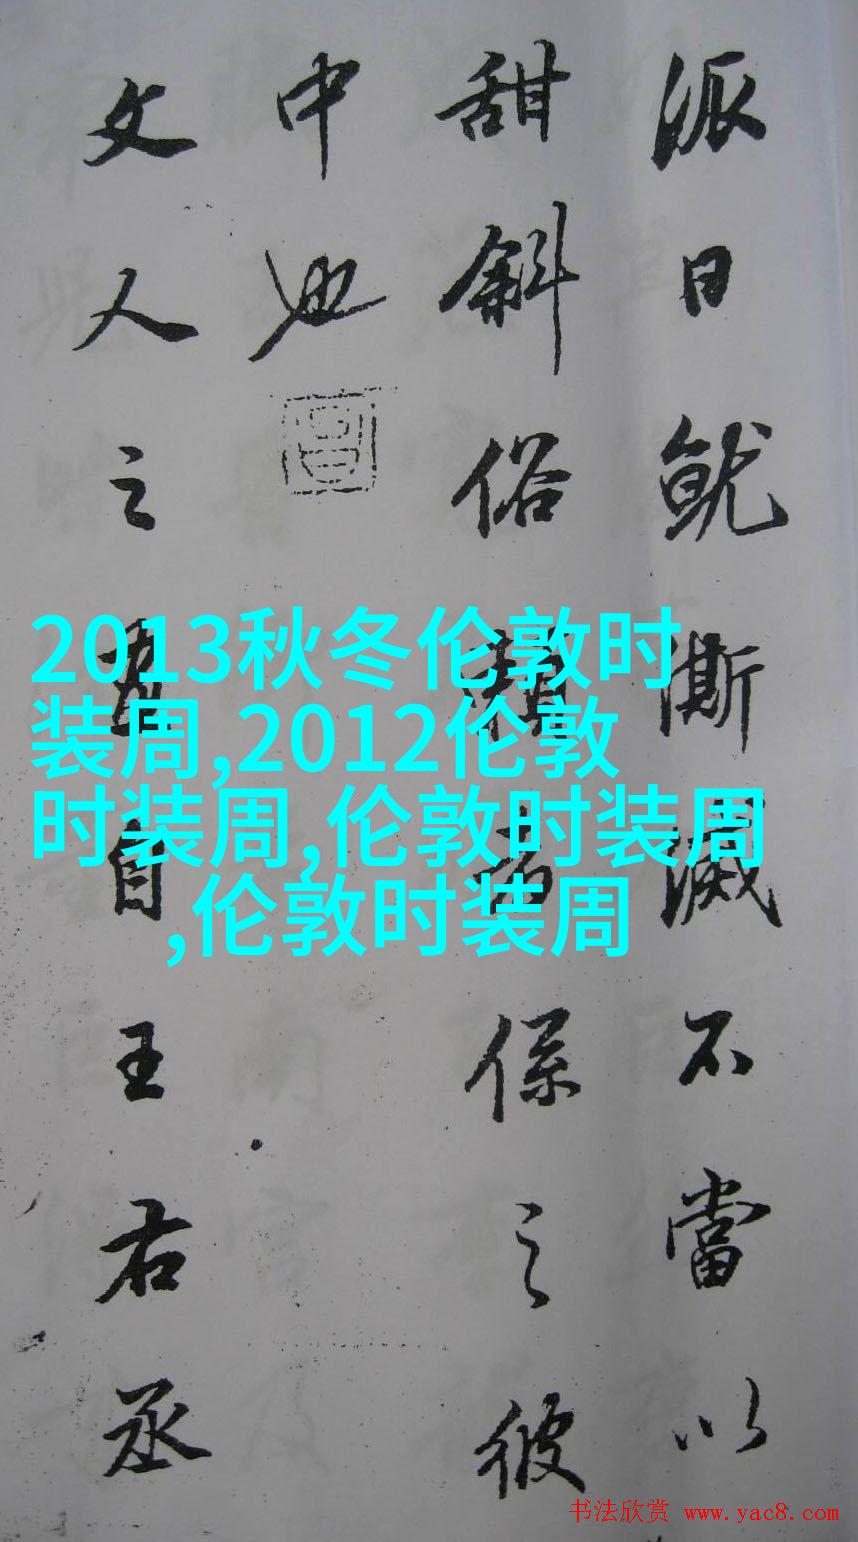 派日就澌滅不當以
甜斜俗賴者係之彼
中也
文人之畫自王右丞
2013秋冬伦敦时
装周,2012伦敦
时装周,伦敦时装周
,伦敦时装周
书法欣赏 www.yac8.com